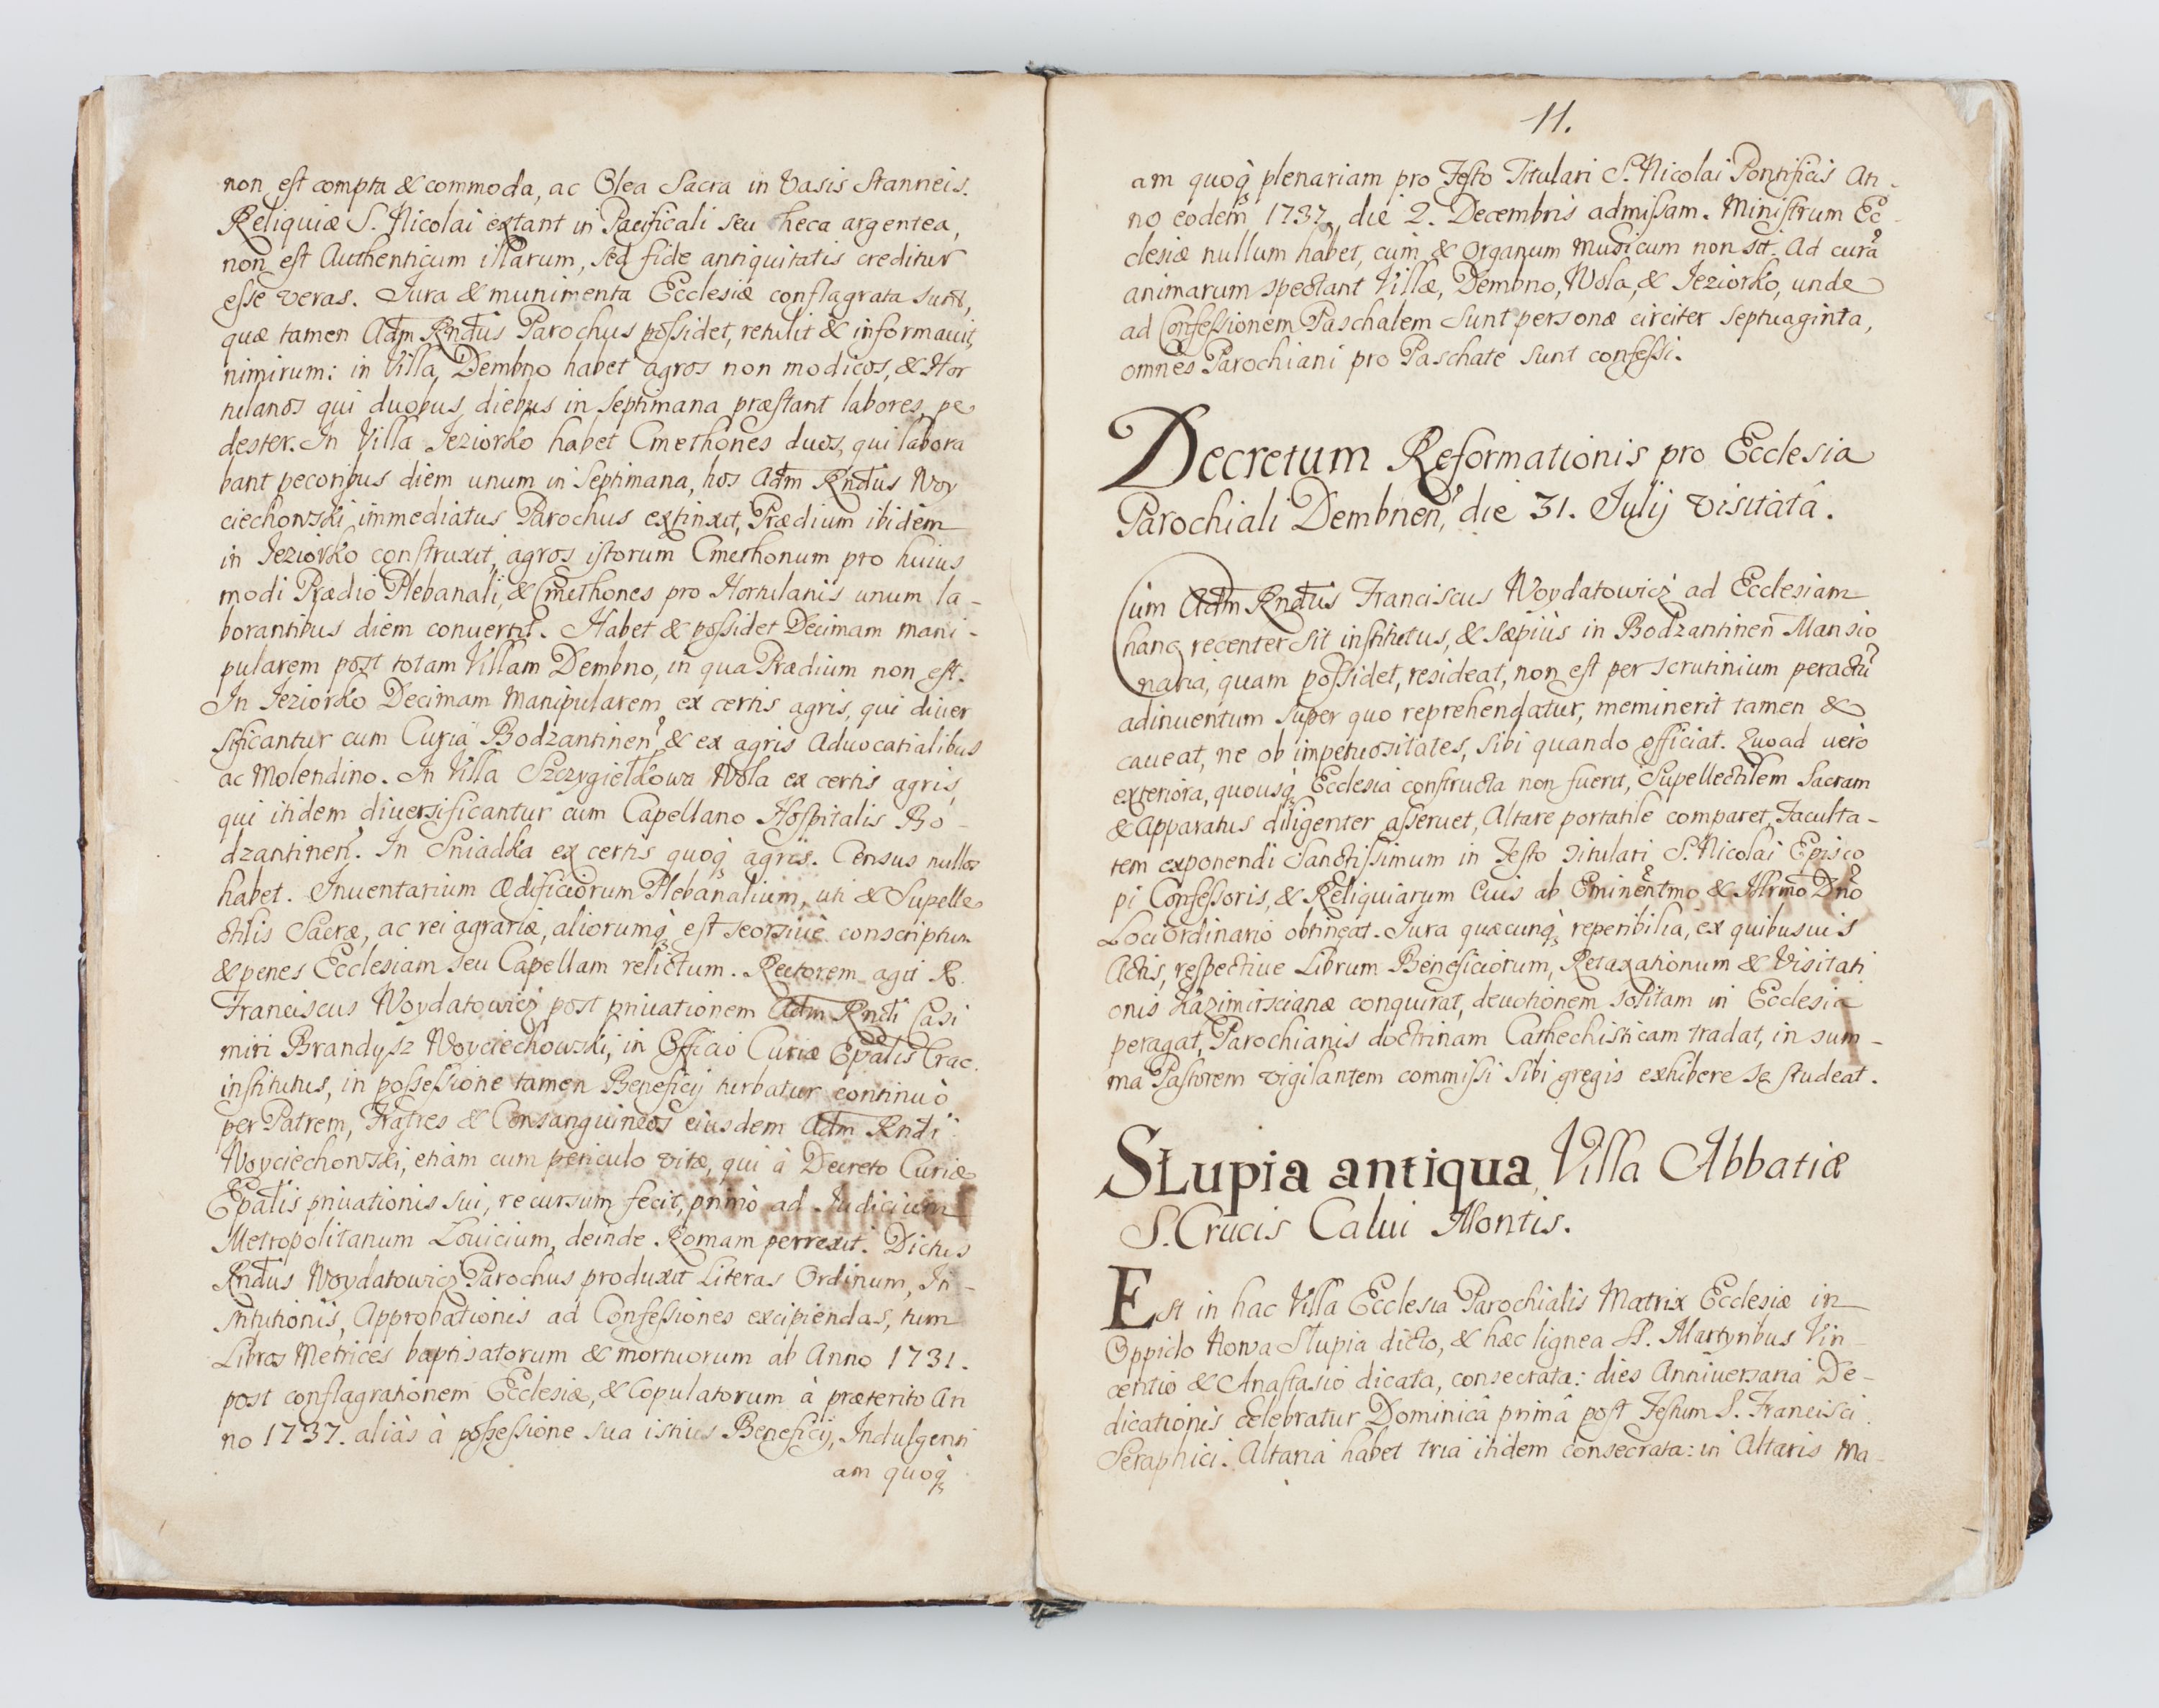 non est compta & commoda, ac Olea Sacra in Vasis Stanneis.
Reliquiæ S. Nicolai extant in Pacificali seu heca argentea,
non est Authenticum illarum, sed fide antiquitatis creditur
esse veras. Jura & munimenta Ecclesiæ conflagrata sunt,
quæ tamen Adm Rndus Parochus possidet, retulit & informavit,
nimirum: in Villa Dembno habet agros non modicos, & Hor
tulanos qui duobus diebus in septimana præstant labores, pe
dester. In Villa Jeziorko habet Cmethones duos, qui labora
bant pecoribus diem unum in Septimana, hos Adm Rndus Woy
ciechowski immediatus Parochus extinxit, Prædium ibidem
in Jeziorko construxit, agros istorum Cmethonum pro huius
modi Prædio Plebanali, & Cmethones pro Hortulanis unum la-
borantibus diem convertit. Habet & possidet Decimam mani-
pularem post totam Villam Dembno, in qua Prædium non est.
In Jeziorko Decimam Manipularem ex certis agris, qui diver
sificantur cum Curia Bodzantinen & ex agris Advocatialibus
ac Molendino. In Villa Szczygiełkowa Wola ex certis agris,
qui itidem diversificantur cum Capellano Hospitalis Bo-
dzantinen. In Sniadka ex certis quoq agris. Census nullos
habet. Inventarium Ædificiorum Plebanalium, uti & Supelle
ctilis Sacræ, ac rei agrariæ, aliorumq est seorsive conscriptum
& penes Ecclesiam seu Capellam relictum. Rectorem agit R.
Franciscus Woydatowicz post privationem Adm Rndi Casi
miri Brandysz Woyciechowski, in Officio Curiæ Epalis Crac.
institutus, in possessione tamen Beneficij turbatur continuò
per Patrem, Fratres & Consanguineos eiusdem Adm Rndi
Woyciechowski, etiam cum periculo vitæ, qui à Decreto Curiæ
Epalis privationis sui, recursum fecit, primò ad Judicium
Metropolitanum Lovicium, deinde Romam perrexit. Dictus
Rndus Woydatowicz Parochus produxit Literas Ordinum, In-
stitutionis, Approbationis ad Confessiones excipiendas, tum
Libros Metrices baptisatorum & mortuorum ab Anno 1731.
post conflagrationem Ecclesiæ, & Copulatorum à præterito An
no 1737. aliàs à possessione sua istius Beneficij, Indulgenti
am quoq
11.
am quoq plenariam pro Festo Titulari S. Nicolai Pontificis An-
no eodem 1737, die 2. Decembris admissam. Ministrum Ec-
clesiæ nullum habet, cum & Organum Musicum non sit. Ad curã
animarum spectant Villæ, Dembno, Wola, & Jeziorko, unde
ad Confessionem Paschalem sunt personæ circiter septuaginta,
omnes Parochiani pro Paschate sunt confessi.
Decretum Reformationis pro Ecclesia
Parochiali Dembnen, die 31. Julij visitatâ.
Cum Adm Rndus Franciscus Woydatowicz ad Ecclesiam
hanc recenter sit institutus, & sæpiùs in Bodzantinen Mansio
naria, quam possidet, resideat, non est per scrutinium peractũ
adinventum super quo reprehendatur, meminerit tamen &
caveat, ne ob impetuositates, sibi quando officiat. Quoad verò
exteriora, quousq Ecclesia constructa non fuerit, Supellectilem Sacram
& Apparatus diligenter asservet, Altare portatile comparet, Faculta-
tem exponendi Sanctissimum in Festo Titulari S. Nicolai Episco
pi Confessoris, & Reliquiarum Eius ab Eminentmo & Illrmo Dno
Loci Ordinario obtineat. Jura quæcunq reperibilia, ex quibusvis
Actis, respective Librum Beneficiorum, Retaxationum & Visitati
onis Kazimirscianæ conquirat, devotionem solitam in Ecclesia
peragat, Parochianis doctrinam Cathechisticam tradat, in sum-
ma Pastorem vigilantem commissi sibi gregis exhibere se studeat.
Słupia antiqua, Villa Abbatiæ
S. Crucis Calvi Montis.
Est in hac Villa Ecclesia Parochialis Matrix Ecclesiæ in
Oppido Nowa Słupia dicto, & hæc lignea SS. Martyribus Vin-
centio & Anastasio dicata, consecrata: dies Anniversaria De-
dicationis celebratur Dominicâ primâ post Festum S. Francisci
Seraphici. Altaria habet tria itidem consecrata: in Altaris Ma-